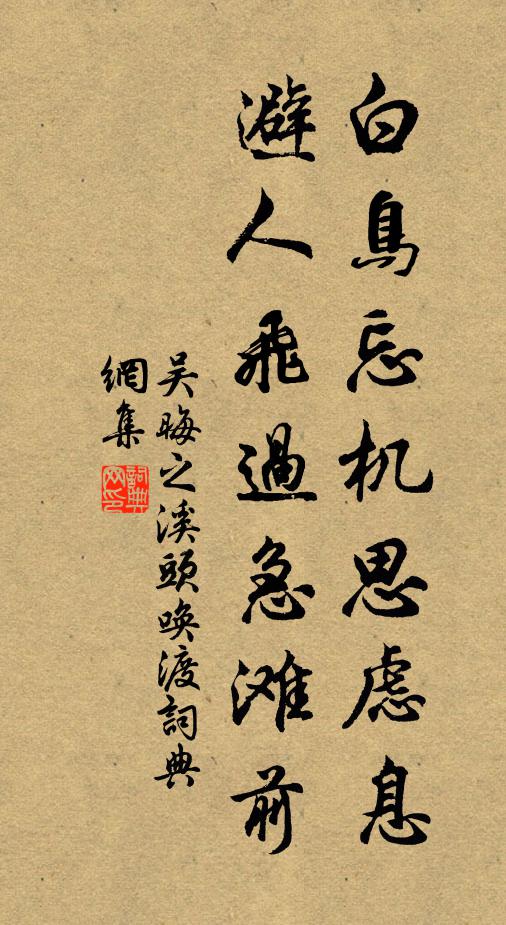 白鳥忘机思虑息
避人飛過急滩前
吴晦之溪頭唤渡詞典
網集
詞典
网印